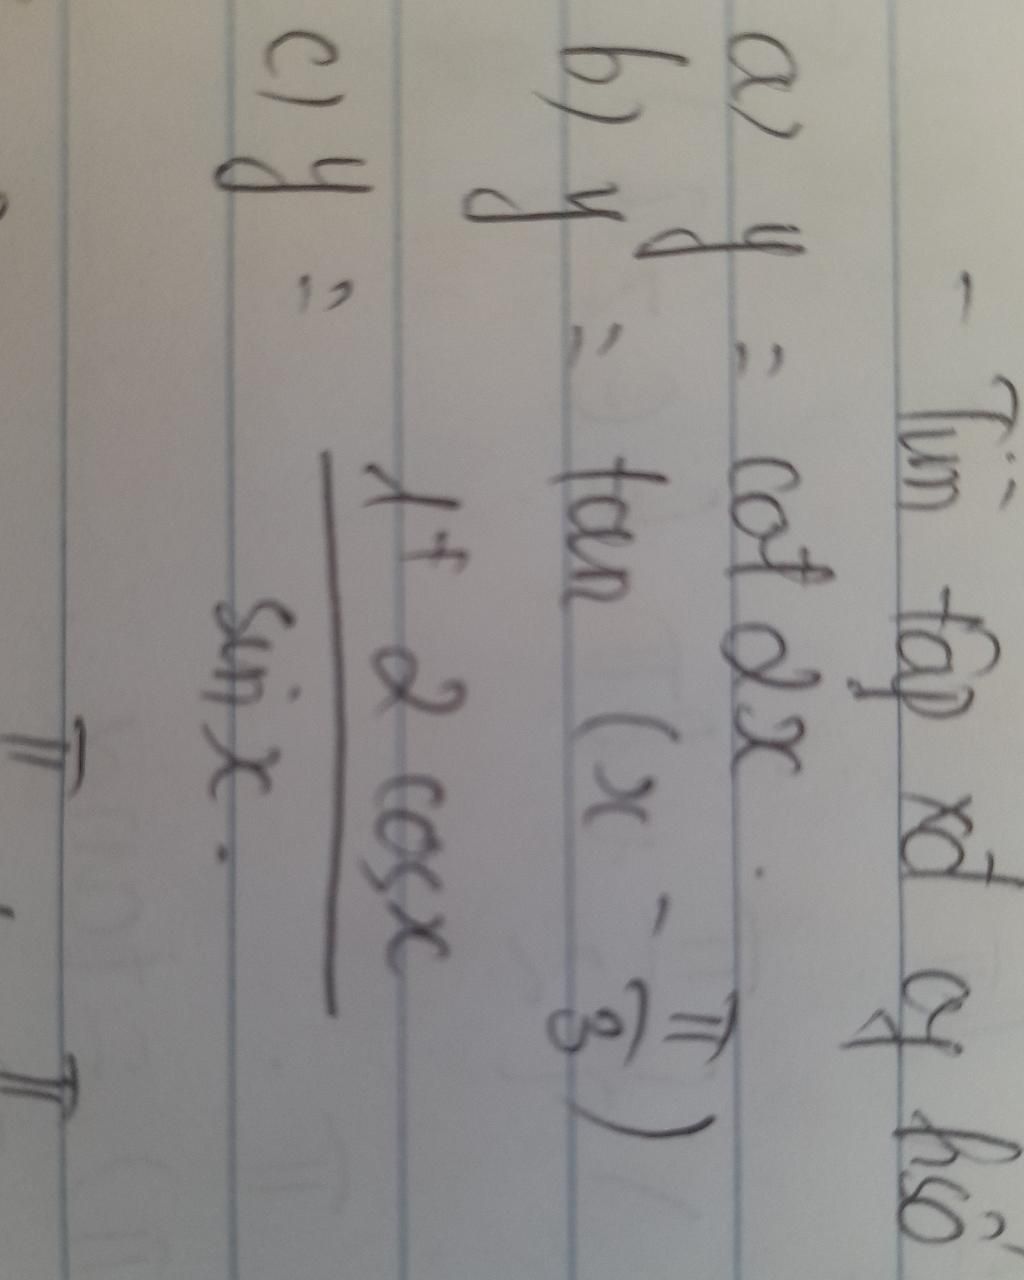 - Tìm tập xđ of hsố
a) y = cot 2x.
b) y = tan (x - π/3)
c) y = (1 + 2 cosx)/(sin x).